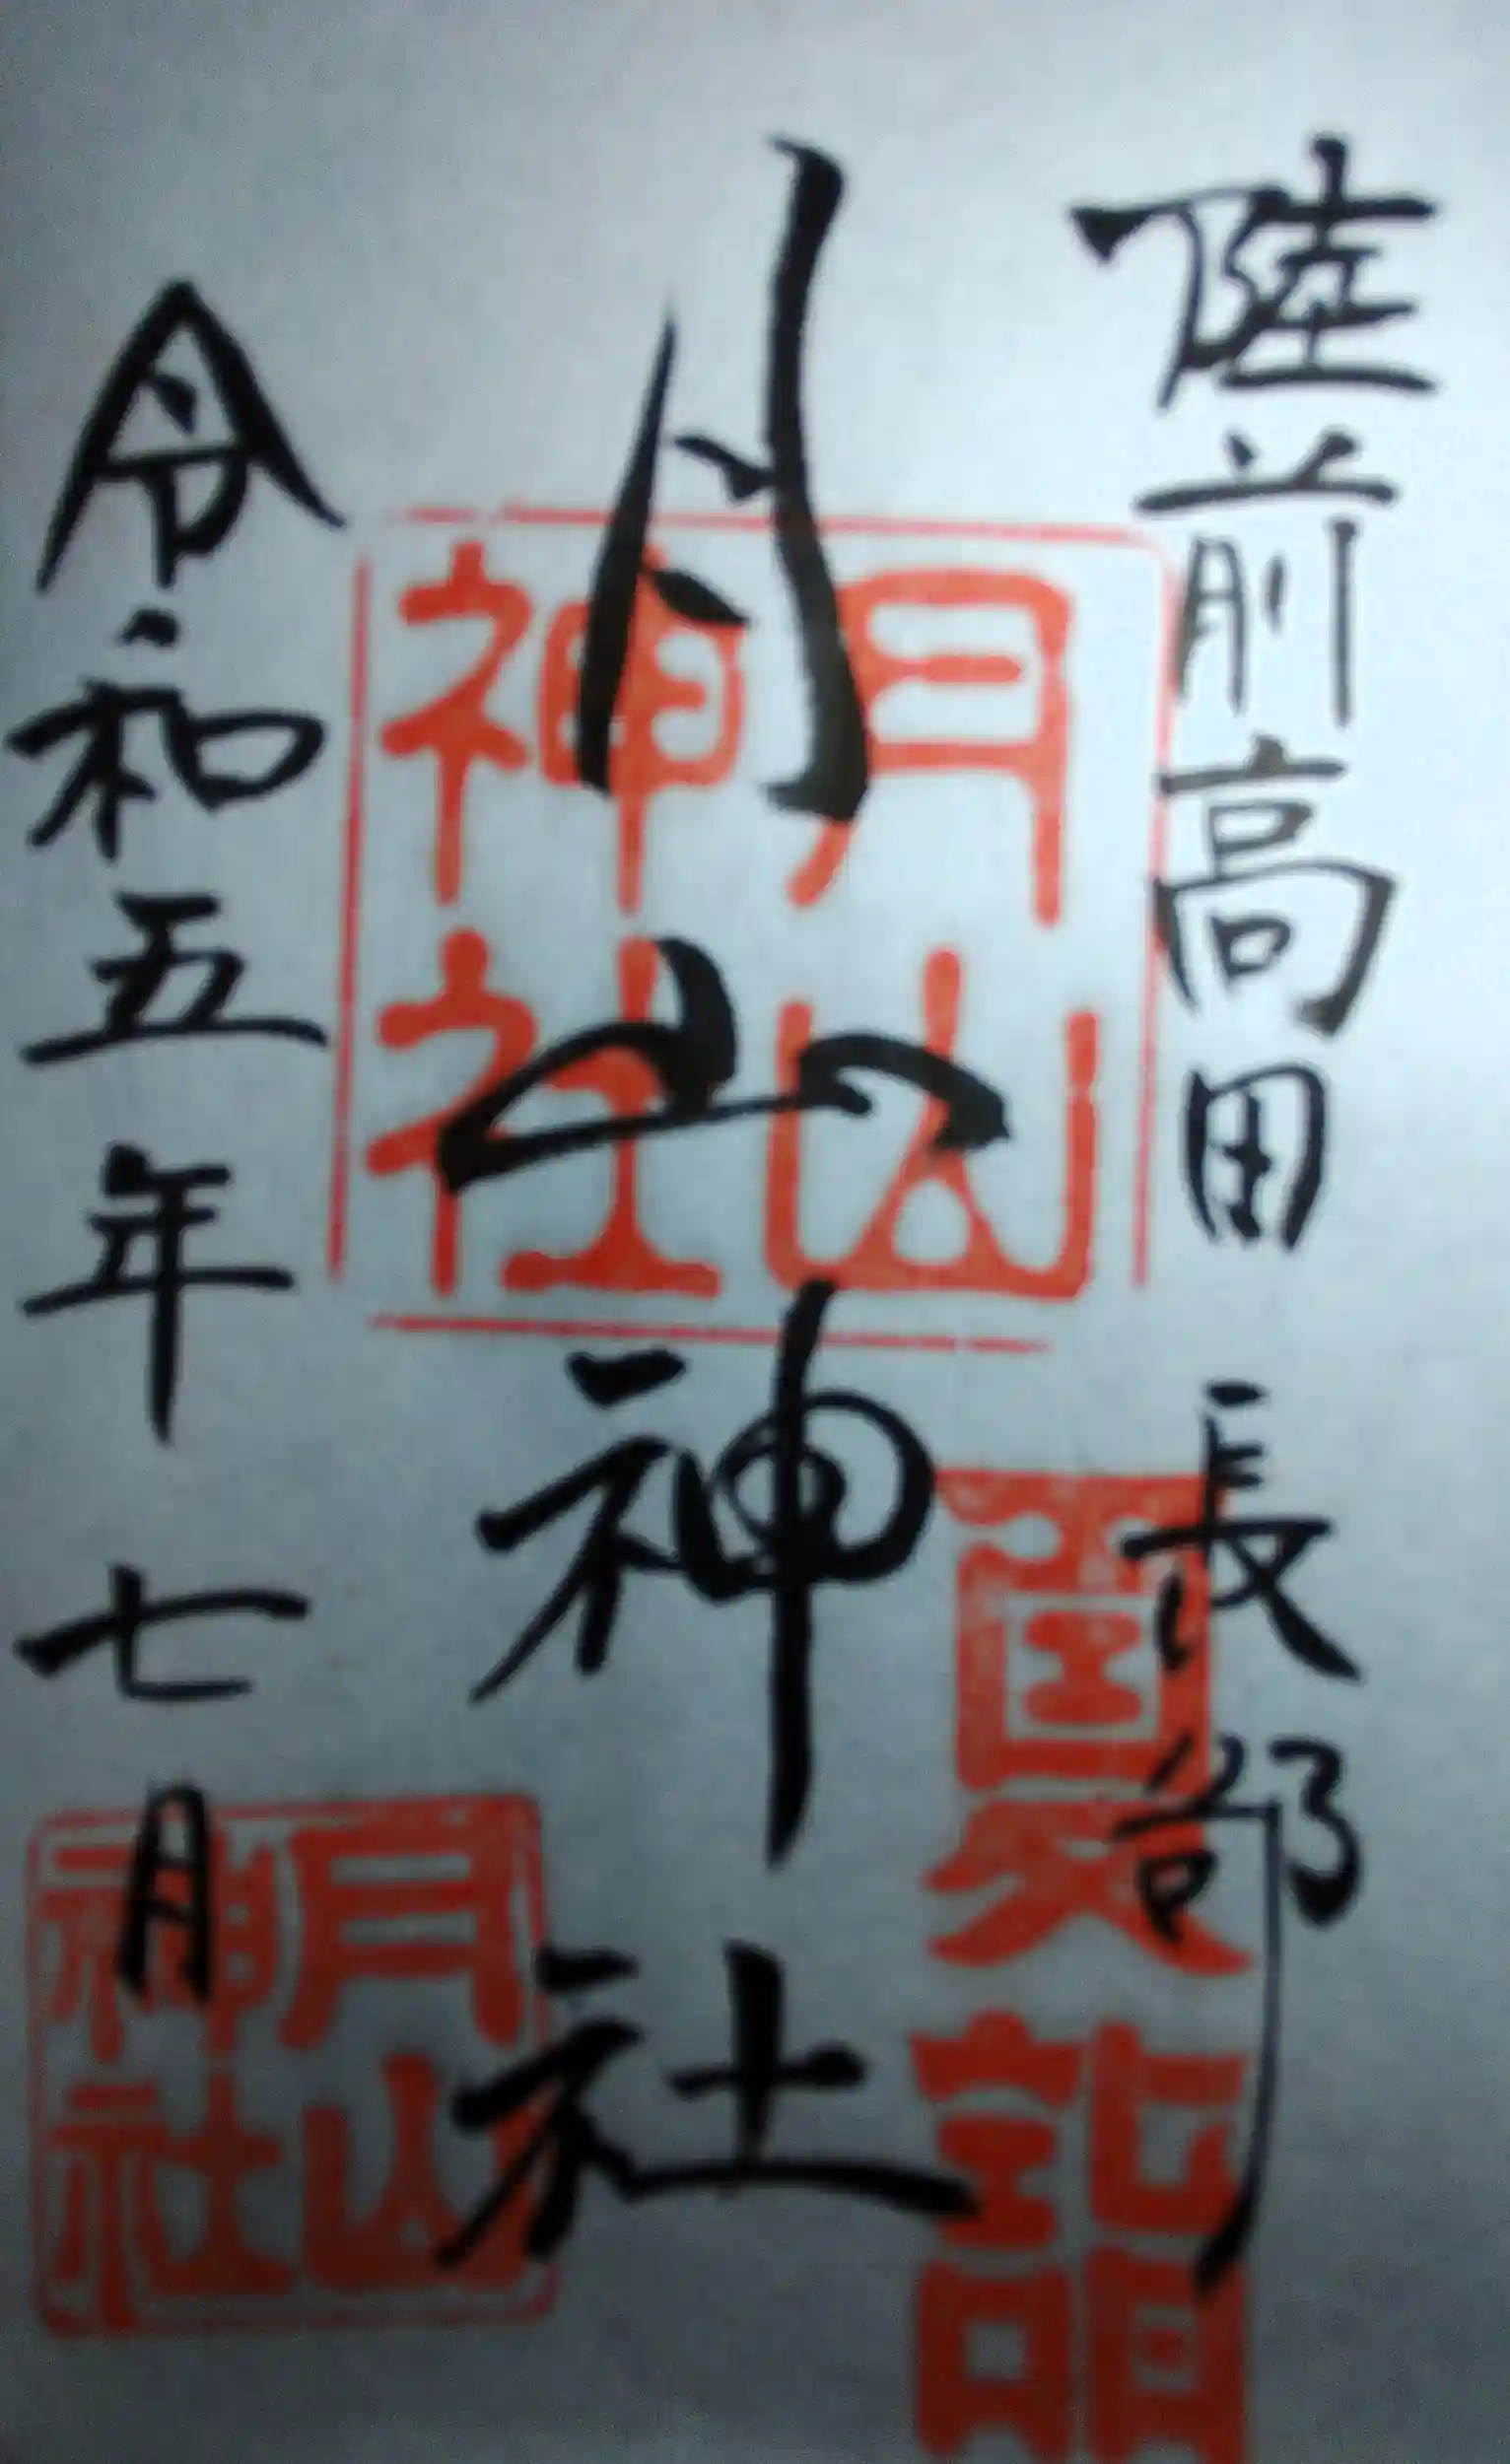 陸前高田 長部
夏詣
月山神社
月山神社
令和五年七月
月山神社